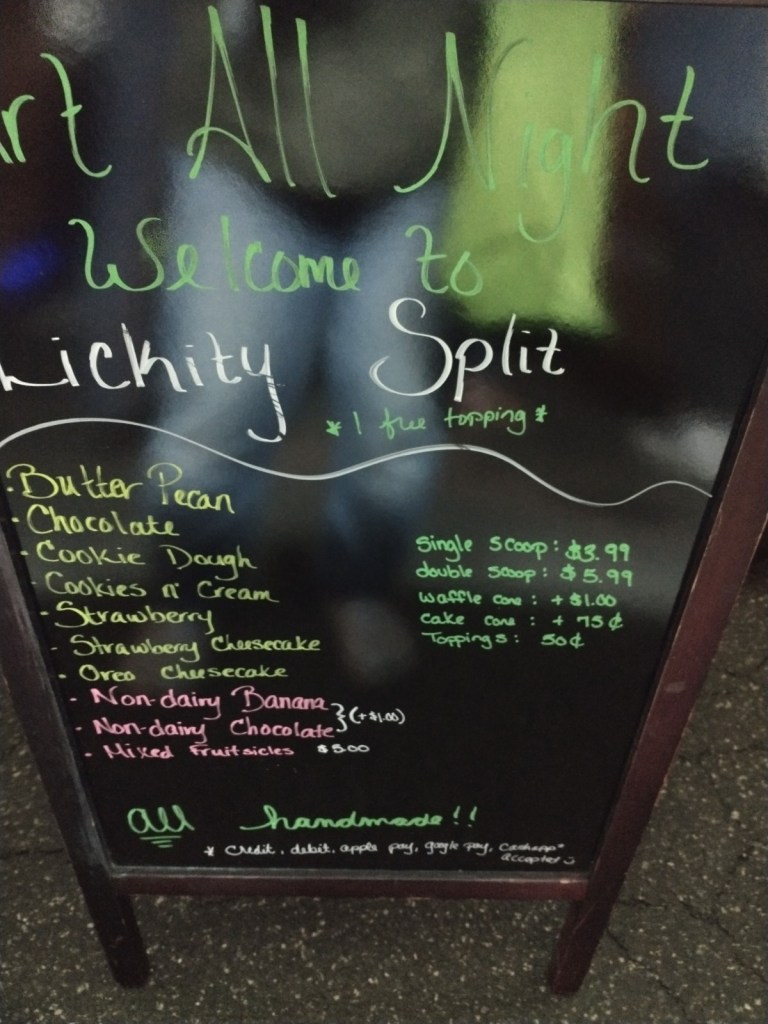 Art All Night
Welcome to
Lickity Split
* 1 free topping *
· Butter Pecan
· Chocolate
· Cookie Dough
· Cookies n' Cream
· Strawberry
· Strawberry Cheesecake
· Oreo Cheesecake
· Non-dairy Banana
· Non-dairy Chocolate } (+$1.00)
· Mixed Fruitsicles $5.00
Single Scoop: $3.99
double scoop: $5.99
waffle cone: + $1.00
cake cone: + 75¢
Toppings: 50¢
all handmade!!
* credit, debit, apple pay, google pay, cashapp*
accepted